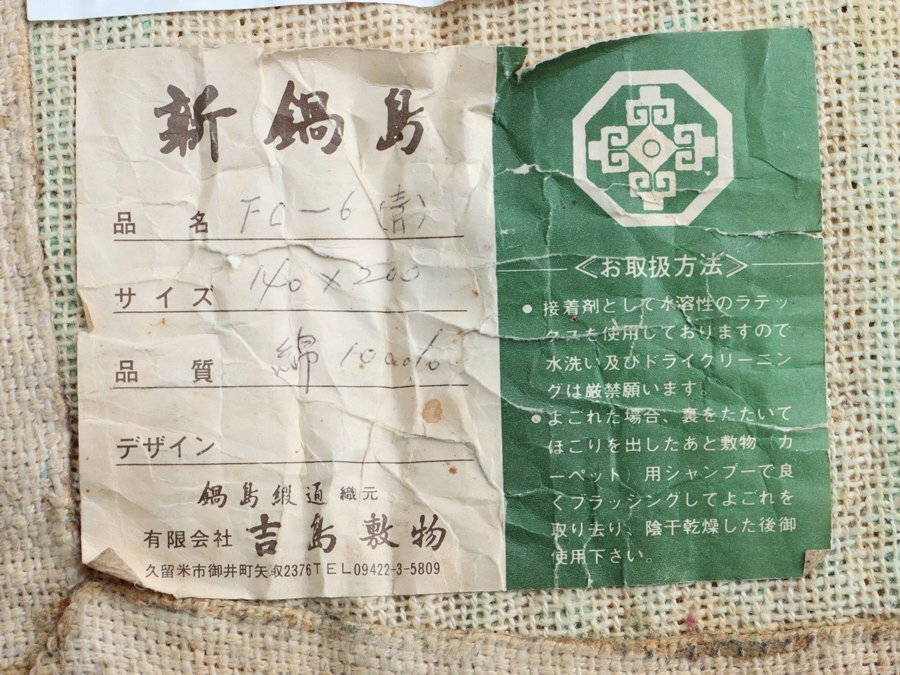 新鍋島
品名 FC-6 (青)
サイズ 140×200
品質 綿100%
デザイン
鍋島緞通 織元
有限会社 吉島敷物
久留米市御井町矢取2376 TEL09422-3-5809
≪お取扱方法≫
●接着剤として水溶性のラテッ
クスを使用しておりますので
水洗い及びドライクリーニン
グは厳禁願います。
●よごれた場合、裏をたたいて
ほこりを出したあと敷物（カ
ーペット）用シャンプーで良
くブラッシングしてよごれを
取り去り、陰干乾燥した後御
使用下さい。